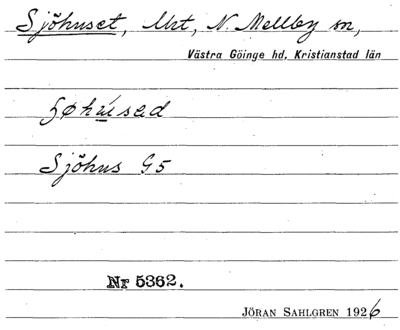 Sjöhuset, lht, N. Mellby sn,
Västra Göinge hd, Kristianstad län
Sjöhus G5
Nr 5362.
JÖRAN SAHLGREN 1926